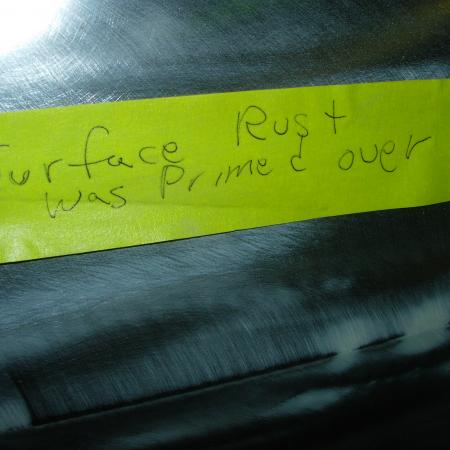 Surface Rust
was primed over